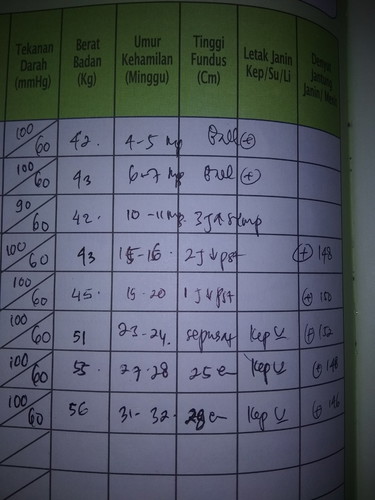 Tekanan Darah (mmHg) Berat Badan (Kg) Umur Kehamilan (Minggu) Tinggi Fundus (Cm) Letak Janin Kep/Su/Li Jantung Janin/
100/60 42. 4-5 mg Ball (+)
100/60 43 6-7 mg Ball (+)
90/60 42. 10-11 mg 3J↑
100/60 43 15-16. 2J↓pst (+) 148
100/60 45. 19-20 1J↓pst (+) 150
100/60 51 23-24. sepusat Kep U (+) 152
100/60 55. 27-28 25 cm Kep U (+)
100/60 56 31-32. 28 cm Kep U (+) 146